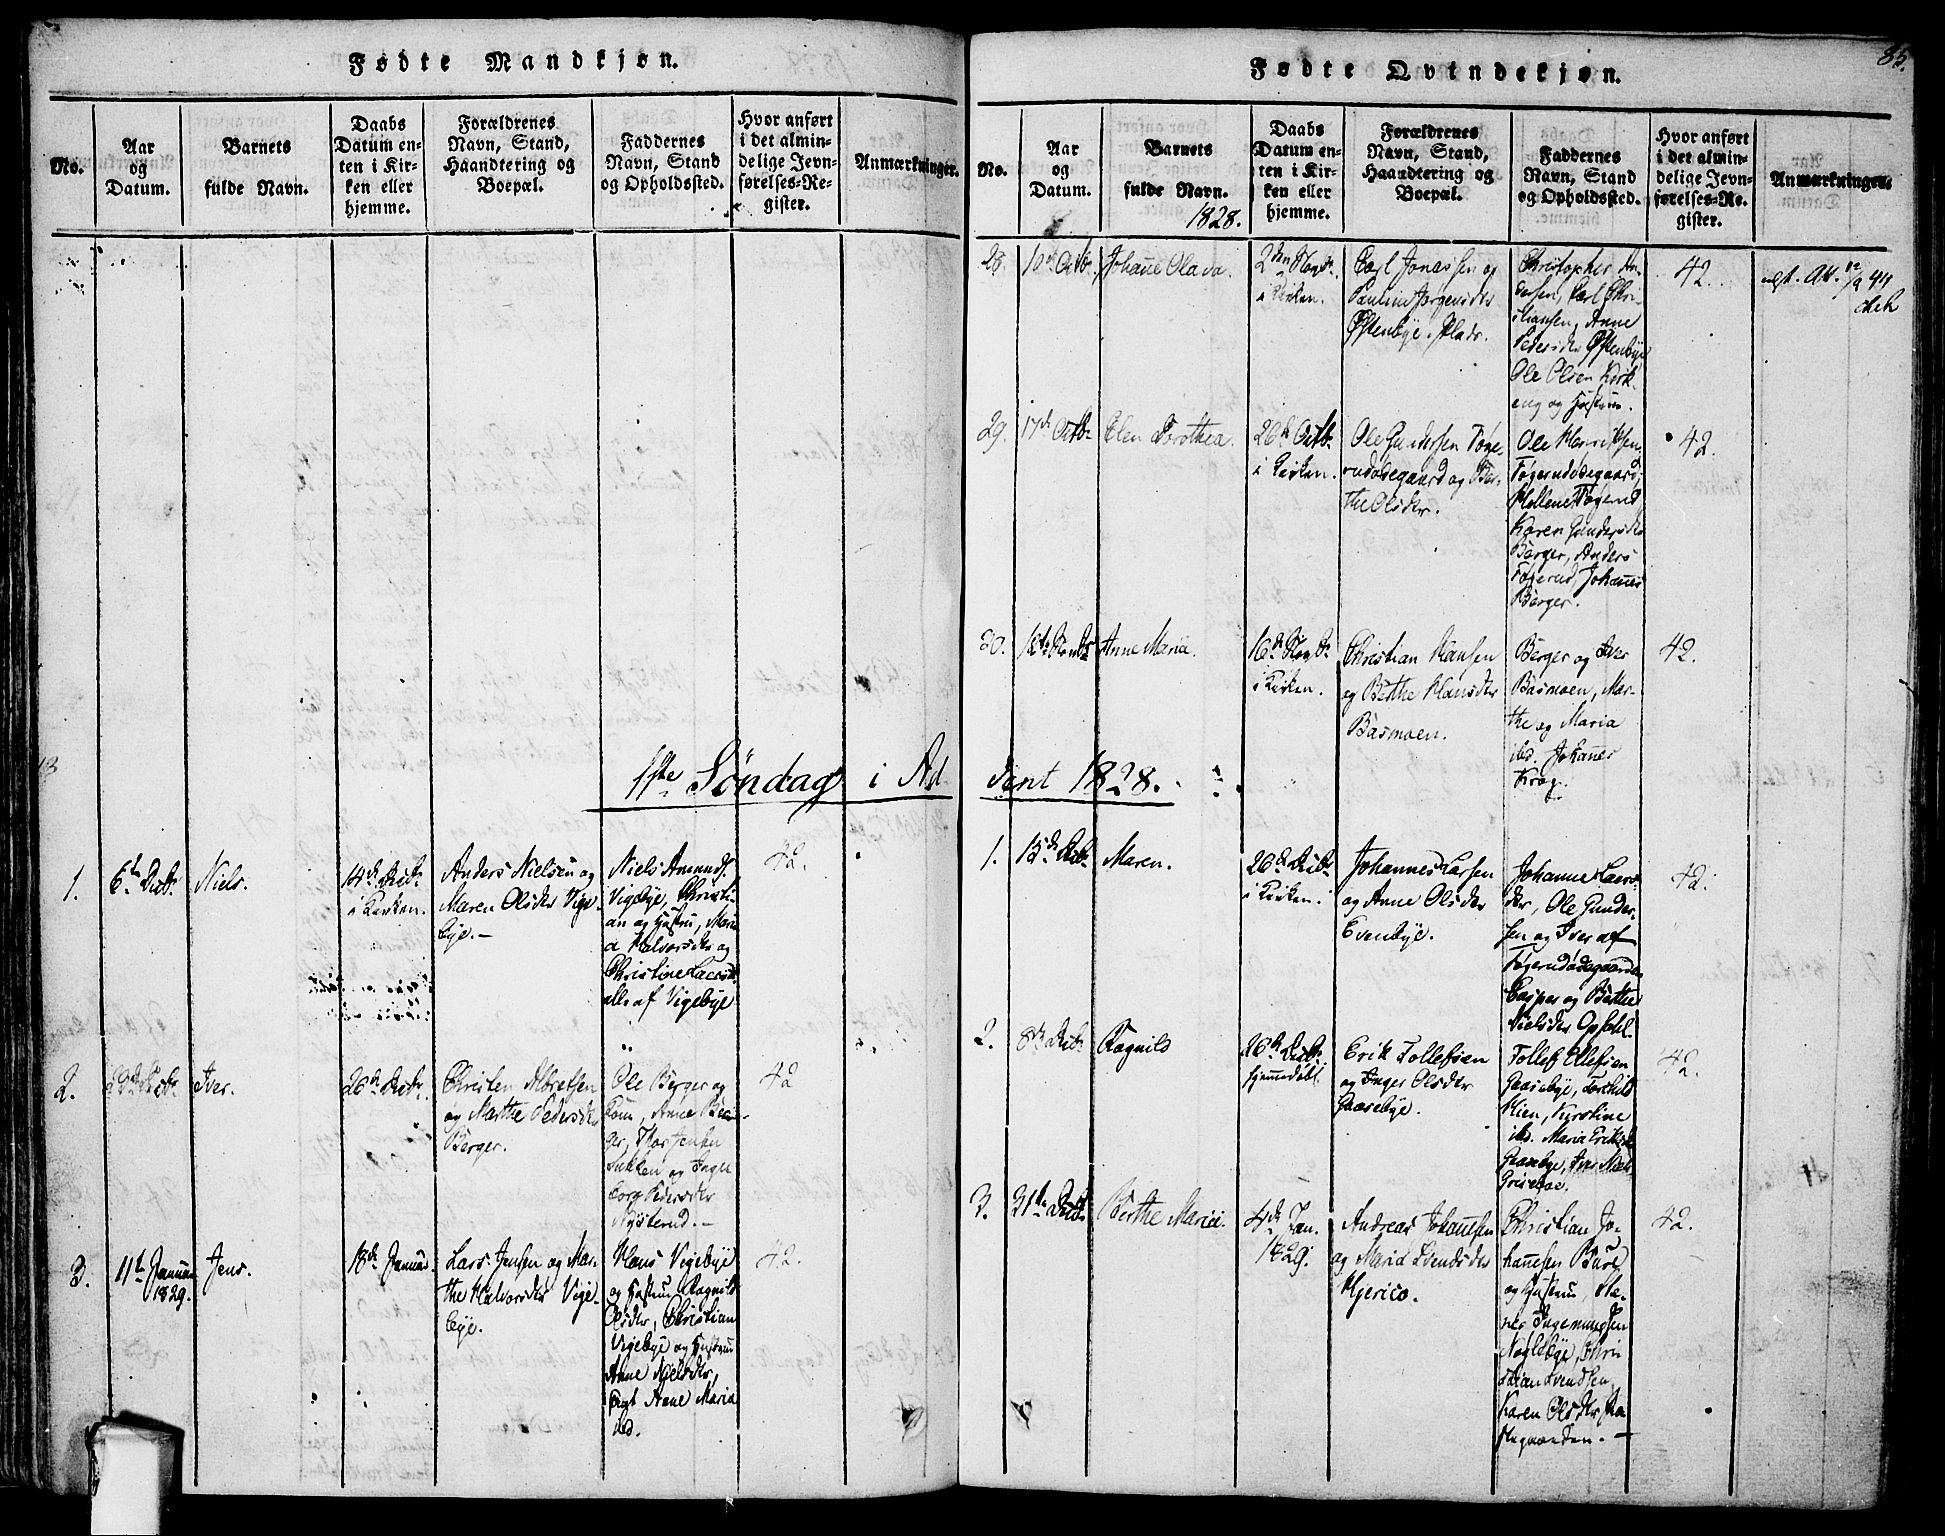 Fødte Mandkjøn.
No.
Aar
og
Datum.
Barnets
fulde Navn.
Daabs
Datum en-
ten i Kir-
ken eller
hjemme.
Forældrenes
Navn, Stand,
Haandtering og
Boepæl.
Faddernes
Navn, Stand
og Opholdssted.
Hvor anført
i det almin-
delige Jevn-
førelses-Re-
gister.
Anmærkninger.
1ste Søndag i Ad
1.
6te Decbr.
Niels.
14de Decbr.
i Kirken.
Anders Nielsen og
Maren Olsdtr Vige-
bye.-
Niels Amunds.
Vigebye, Christi-
an og Hustru, Mari
a Halvorsdtr og
Christine Larsdtr
alle af Vigebye
42.
2.
Iver.
26de Decbr.
Christen Albretsen
og Marthe Pedersdtr
Berger.
Ole Berger og
Kone, Anne Ber-
ger,
og Inge
borg Pedersdtr
42
3.
11te Januar
1829.
Jens.
18de Januar.
Lars Jensen og Mar-
the Halvorsdtr Vige-
bye.
Hans Vigebye
og Hustru Ragnild
Olsdtr, Christian
Vigebye og Hustru
Anne Nielsdtr,
Anne Maria
ibd.
42.
Fødte Qvindekjøn.
85.
No.
Aar
og
Datum.
Barnets
fulde Navn.
1828.
Daabs
Datum en-
ten i Kir-
ken eller
hjemme.
Forældrenes
Navn, Stand,
Haandtering og
Boepæl.
Faddernes
Navn, Stand
og Opholdssted.
Hvor anført
i det almin-
delige Jevn-
førelses-Re-
gister.
Anmærkninger.
28.
10de Octbr.
Johanne Olava.
2den Novbr.
i Kirken.
Carl Jonassen og
Pauline Jørgensdtr
Østenbye Plads.
Christopher An-
dersen, Carl Chri-
stiansen, Anne
Pedersdtr Østenbye
Ole Olsen Kirk
eng og Hustru.
42.
udst. Att. 12/9 44
29.
17de Octbr.
Elen Dorothea.
26de Octbr.
i Kirken.
Ole Gundersen Tøge-
rudødegaard og Ber-
the Olsdtr.
Ole Henriksen
Tøgerudødegaard,
Hellene Tøgerud
Karen Gundersdtr
Berger, Anders
Tøgerud, Johannes
Berger.
42.
30.
Anne Maria.
16de Novbr.
i Kirken.
Christian Hansen
og Berthe Hansdtr
Basmoen.
Berger og Iver
Basmoen, Mar-
the og Maria
ibd. Johannes
Krog.
42.
vent 1828.
1.
15de Decbr.
Maren.
26de Decbr.
i Kirken.
Johannes Larsen
og Anne Olsdtr
Evenbye.
Johanne Lars-
dtr, Ole Gunder-
sen og Iver af
Tøgerudødegaarden
Casper og Berthe
Nielsdtr Opsahl.
42.
2.
8de Decbr.
Ragnild
26de Decbr.
hjemmedøbt.
Erik Tollefsen
og Inger Olsdtr
Gaasebye.
Tollef Ellefsen
Gaasebye, Torchild
Mien, Kirstine
ibd. Maria Eriksdtr
Gaasebye, Iver
42.
3.
31te Decbr.
Berthe Maria.
4de Jan.
1829.
Andreas Johannesen
og Maria Svendsdtr
Hjerico.
Christian Jo-
hannesen Bure
og Hustru, Ha-
nes Ingemundsen
Noglebye, Chri
stian Svendsen,
Karen Olsdtr
42.